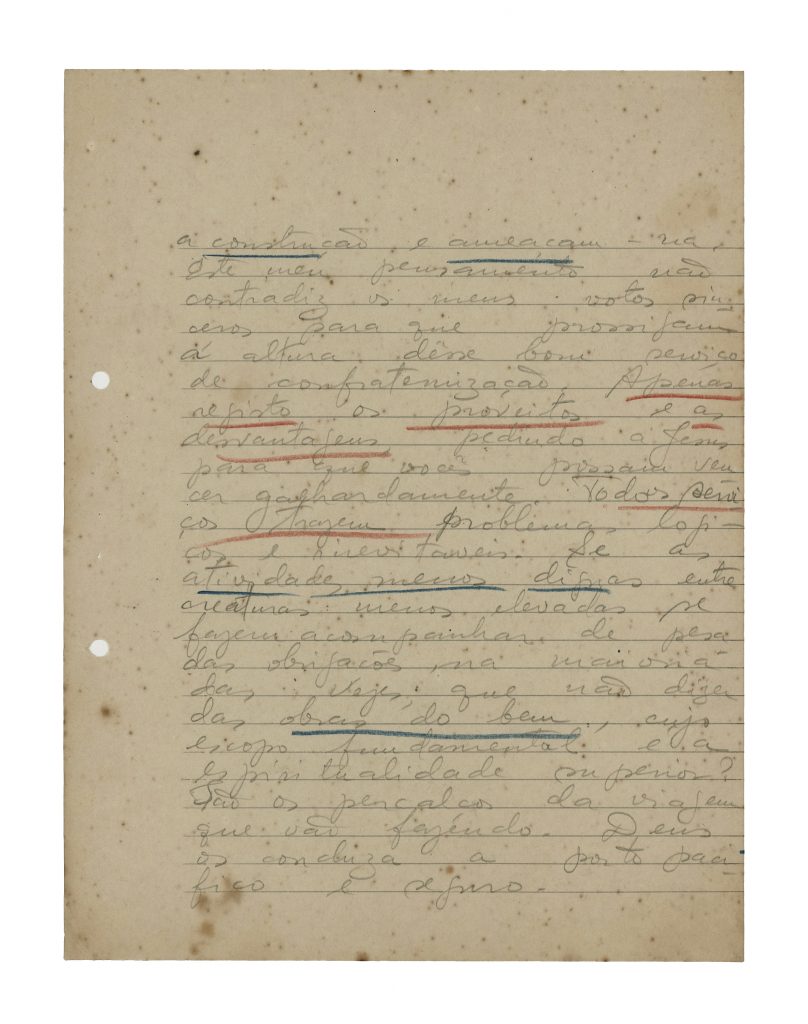 a construção e ameaçam-na.
Este meu pensamento não
contradiz os meus votos sin-
ceros para que prossigam
á altura dêsse bom serviço
de confraternização. Apenas
registo os proveitos e as
desvantagens, pedindo a Jesus
para que vocês possam ven
cer galhardamente. Todos servi
ços trazem problemas logi-
cos e inevitaveis. Se as
atividades menos dignas entre
creaturas menos elevadas se
fazem acompanhar de pesa
das obrigações, na maioria
das vezes, que não dizer
das obras do bem, cujo
escopo fundamental e a
espiritualidade superior?
São os percalcos da viagem
que vão fazendo. Deus
os conduza a porto paci
fico e seguro.